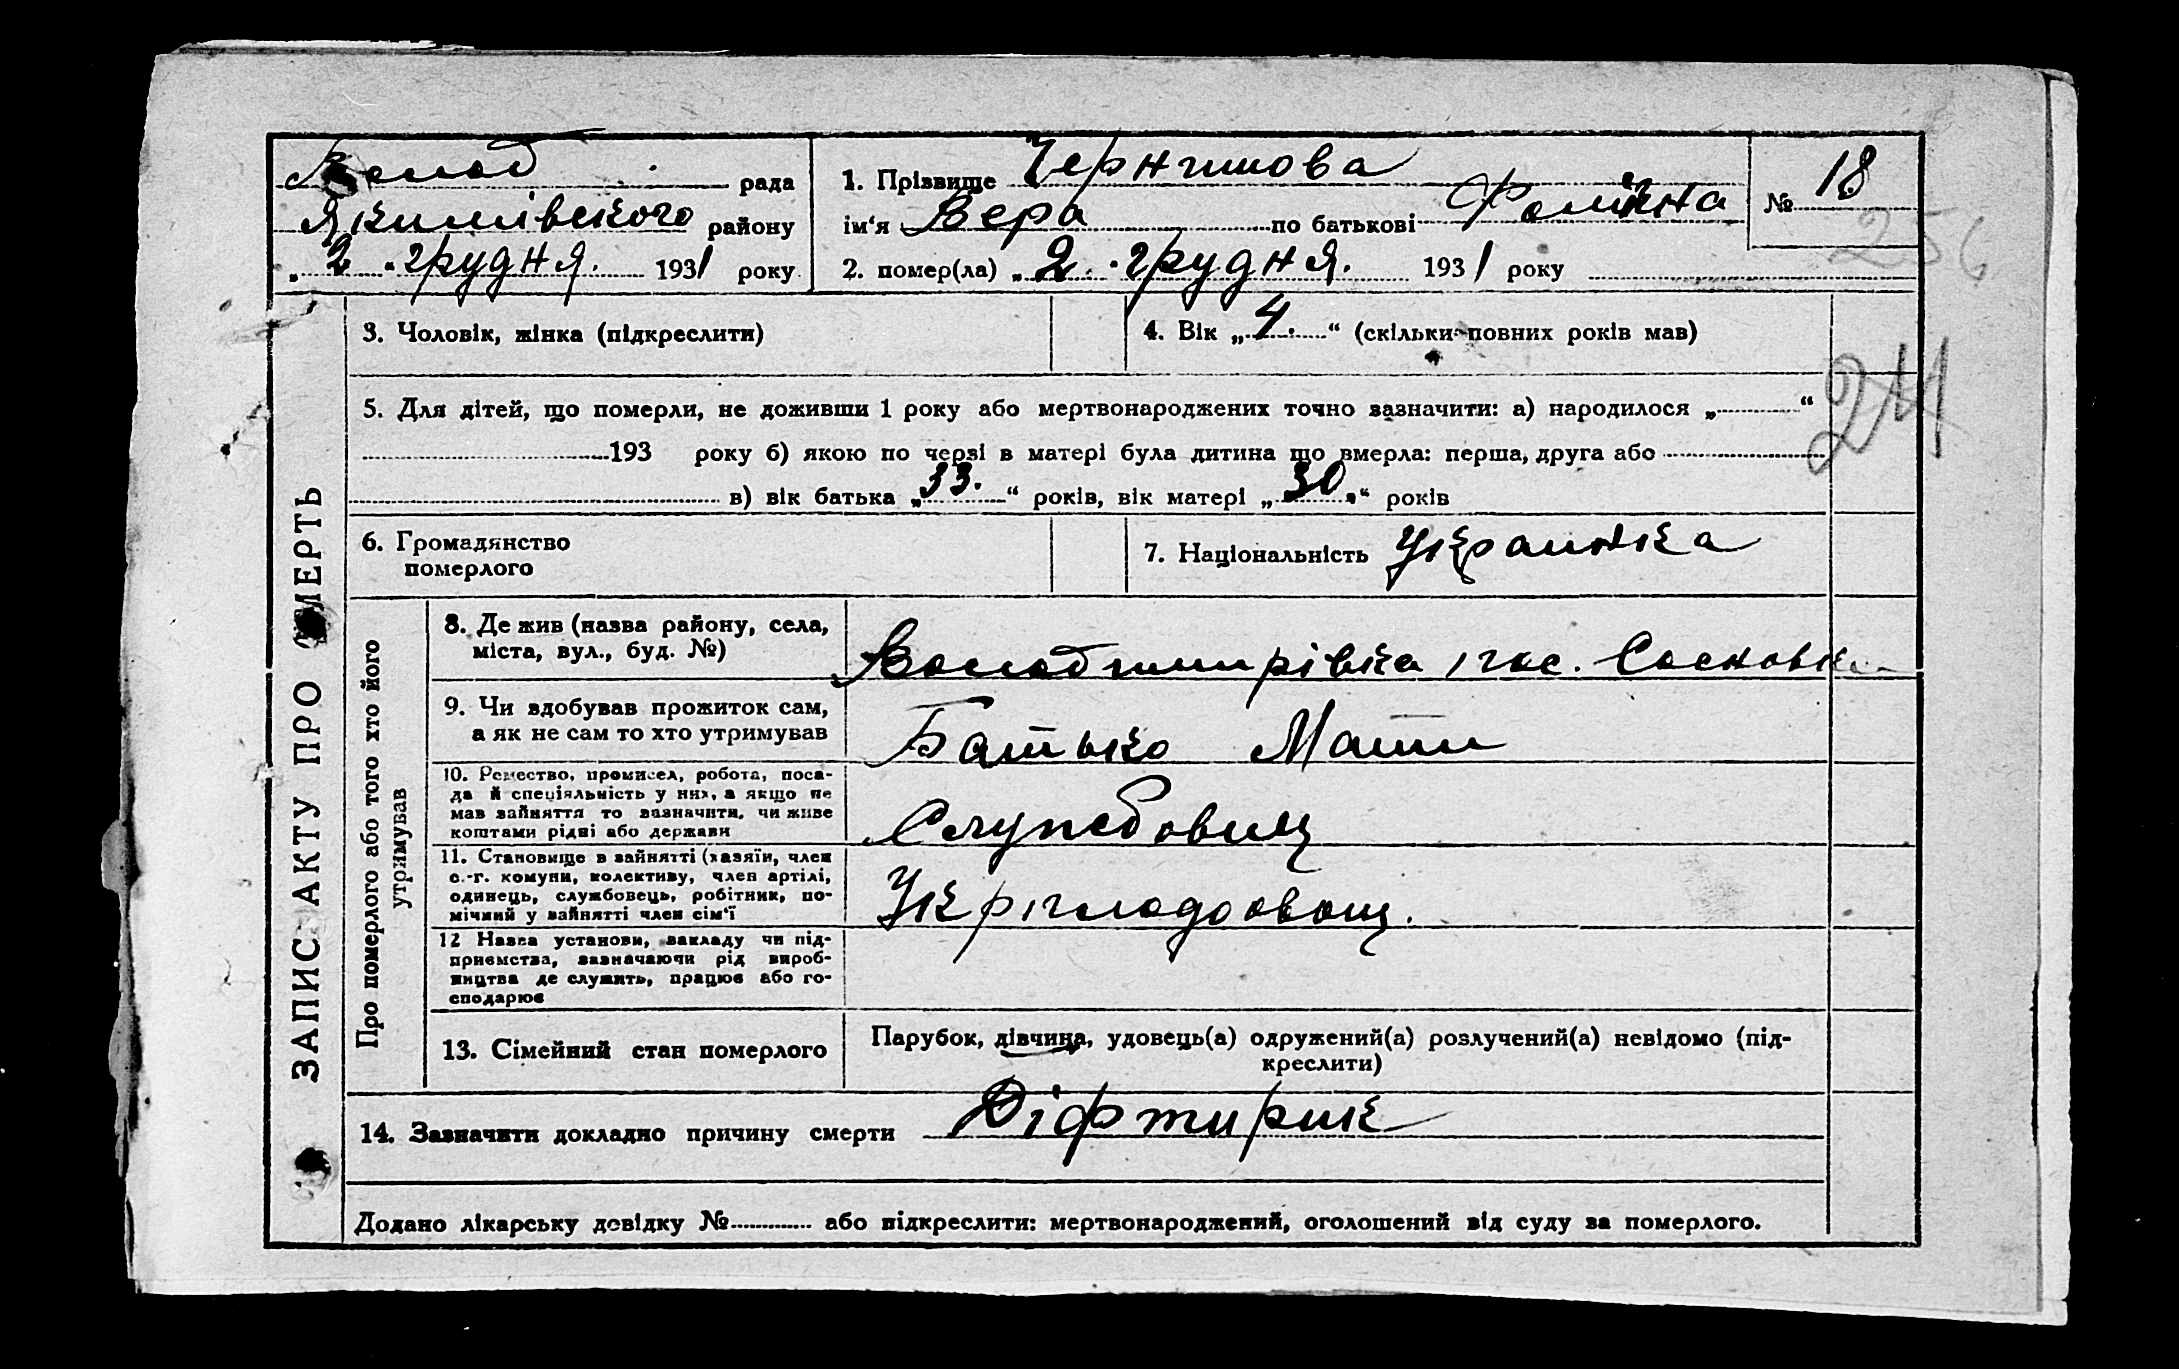 Волод рада
Якимівського району
„ 2 “ грудня. 1931 року
1. Прізвище Чернишова
ім‘я Вера по батькові Фомінна
2. помер(ла) „ 2 . грудня. 1931 року
№ 18
256
3. Чоловік, жінка (підкреслити)
4. Вік „ 4. “ (скільки повних років мав)
241
5. Для дітей, що померли, не доживши 1 року або мертвонароджених точно зазначити: а) народилося „ “
193 року б) якою по черзі в матері була дитина що вмерла: перша, друга або
в) вік батька „ 33. “ років, вік матері „ 30. “ років
6. Громадянство
померлого
7. Національність Украинка
ЗАПИС АКТУ ПРО СМЕРТЬ
Про померлого або того хто його
утримував
8. Де жив (назва району, села,
міста, вул., буд. №)
Володимирівка гос. Сосновка
9. Чи здобував прожиток сам,
а як не сам то хто утримував
Батько Мати
10. Ремество, промисел, робота, поса-
да й спеціяльність у них, а якщо не
мав зайняття то зазначити, чи живе
коштами рідні або держави
Службовиц
11. Становище в зайнятті (хазяїн, член
с.-г. комуни, колективу, член артілі,
одинець, службовець, робітник, по-
мічний у зайнятті член сім‘ї
Укрплодоовощ.
12 Назва установи, закладу чи під-
приємства, зазначаючи рід вироб-
ництва де служить, працює або го-
сподарює
13. Сімейний стан померлого
Парубок, дівчина, удовець(а) одружений(а) розлучений(а) невідомо (під-
креслити)
14. Зазначити докладно причину смерти Діфтирик
Додано лікарську довідку № або підкреслити: мертвонароджений, оголошений від суду за померлого.